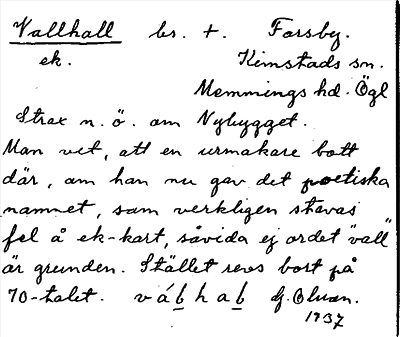 Vallhall bs. t. Forsby.
ek. Kimstads sn.
Memmings hd. Ögl
Strax n. ö. om Nybygget.
Man vet, att en urmakare bott
där, om han nu gav det poetiska
namnet, som verkligen stavas
fel å ek-kart, såvida ej ordet "vall"
är grunden. Stället revs bort på
70-talet. v á b h a b
1937